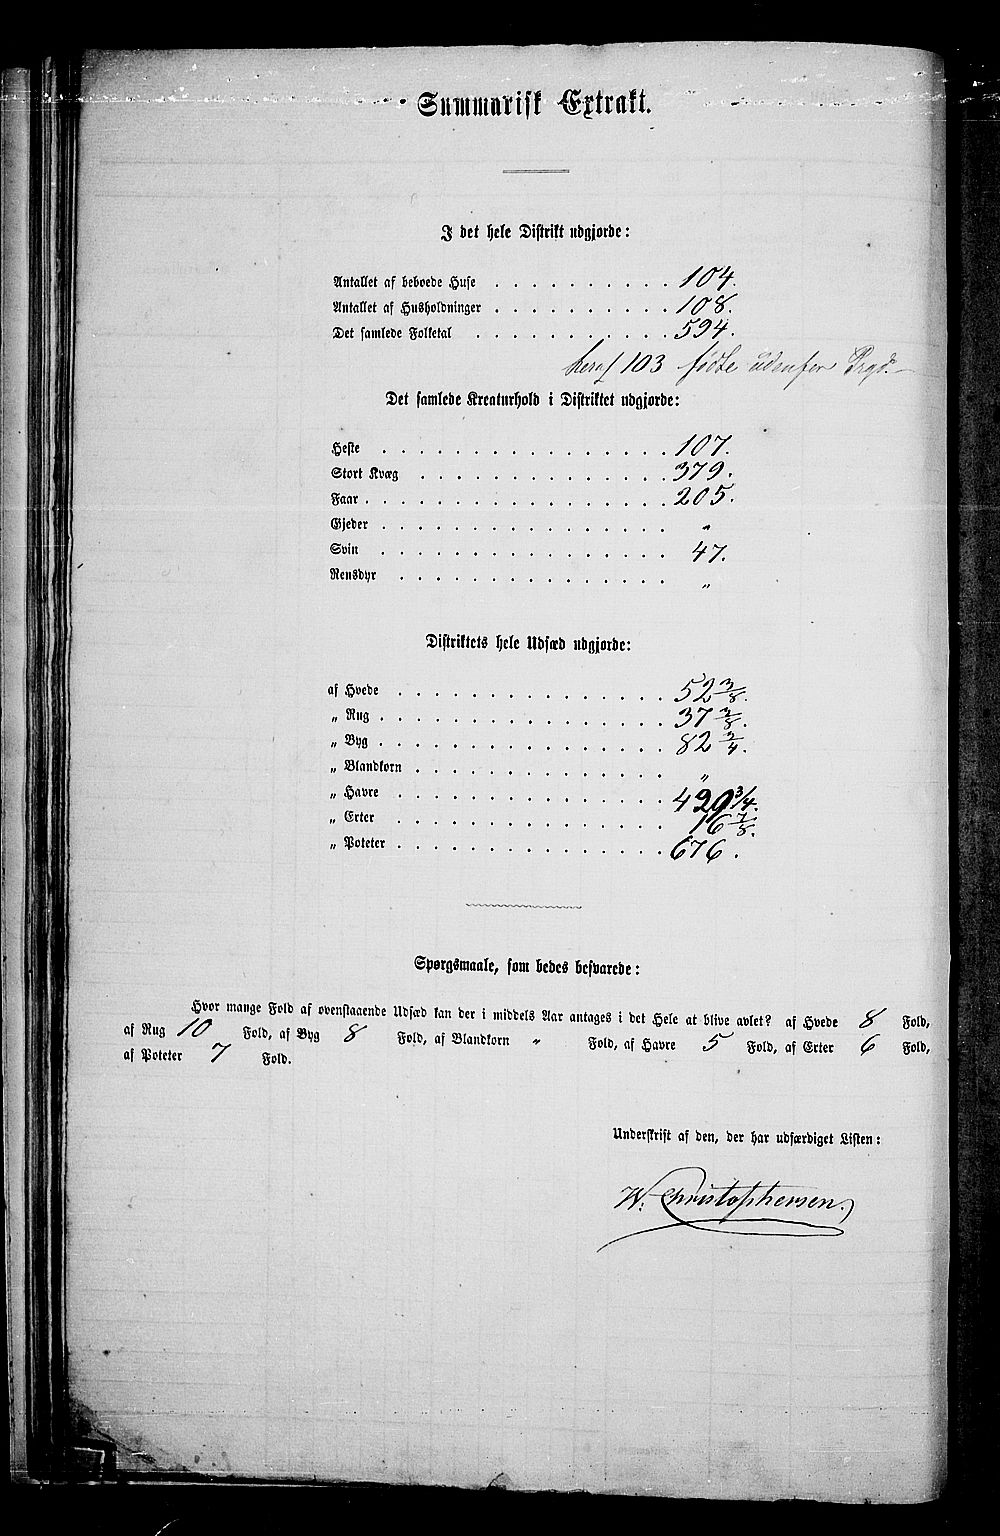 Summarisk Extrakt.
I det hele Distrikt udgjorde:
Antallet af beboede Huse . . . . . . . . . . 104.
Antallet af Husholdninger . . . . . . . . . . 108.
Det samlede Folketal . . . . . . . . . . . 594.
heraf 103 fødte udenfor Prgd.
Det samlede Kreaturhold i Distriktet udgjorde:
Heste . . . . . . . . . . . . . . . . . 107.
Stort Kvæg . . . . . . . . . . . . . . . 379.
Faar . . . . . . . . . . . . . . . . . . 205.
Gjeder . . . . . . . . . . . . . . . . . "
Svin . . . . . . . . . . . . . . . . . 47.
Rensdyr . . . . . . . . . . . . . . . . "
Distriktets hele Udsæd udgjorde:
af Hvede . . . . . . . . . . . . . . . . 52 3/8.
„ Rug . . . . . . . . . . . . . . . . . 37 3/8.
„ Byg . . . . . . . . . . . . . . . . . 82 3/4.
„ Blandkorn . . . . . . . . . . . . . . . "
„ Havre . . . . . . . . . . . . . . . . 420 3/4.
„ Erter . . . . . . . . . . . . . . . . 16 7/8.
„ Poteter . . . . . . . . . . . . . . . . 676.
Spørgsmaale, som bedes besvarede:
Hvor mange Fold af ovenstaaende Udsæd kan der i middels Aar antages i det Hele at blive avlet? af Hvede 8 Fold,
af Rug 10 Fold, af Byg 8 Fold, af Blandkorn " Fold, af Havre 5 Fold, af Erter 6 Fold,
af Poteter 7 Fold.
Underskrift af den, der har udfærdiget Listen:
W. Christophersen.